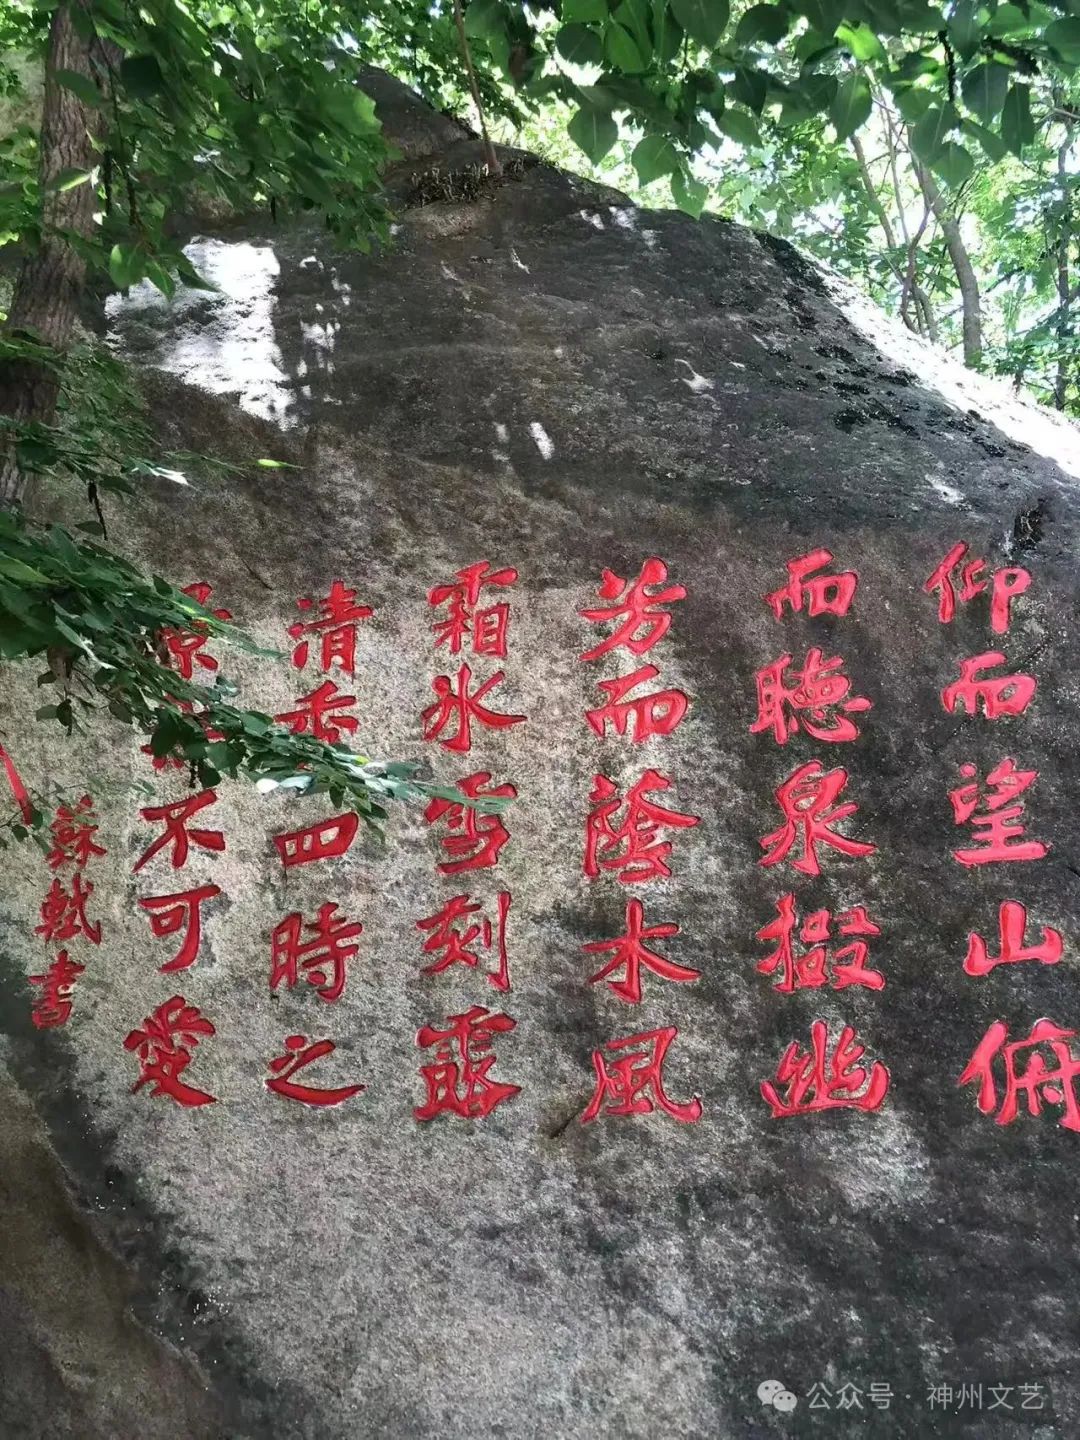 仰而望山俯
而聽泉掇幽
芳而蔭木風
霜氷雪刻露
清秀四時之
景不可愛
蘇軾書
公众号·神州文艺